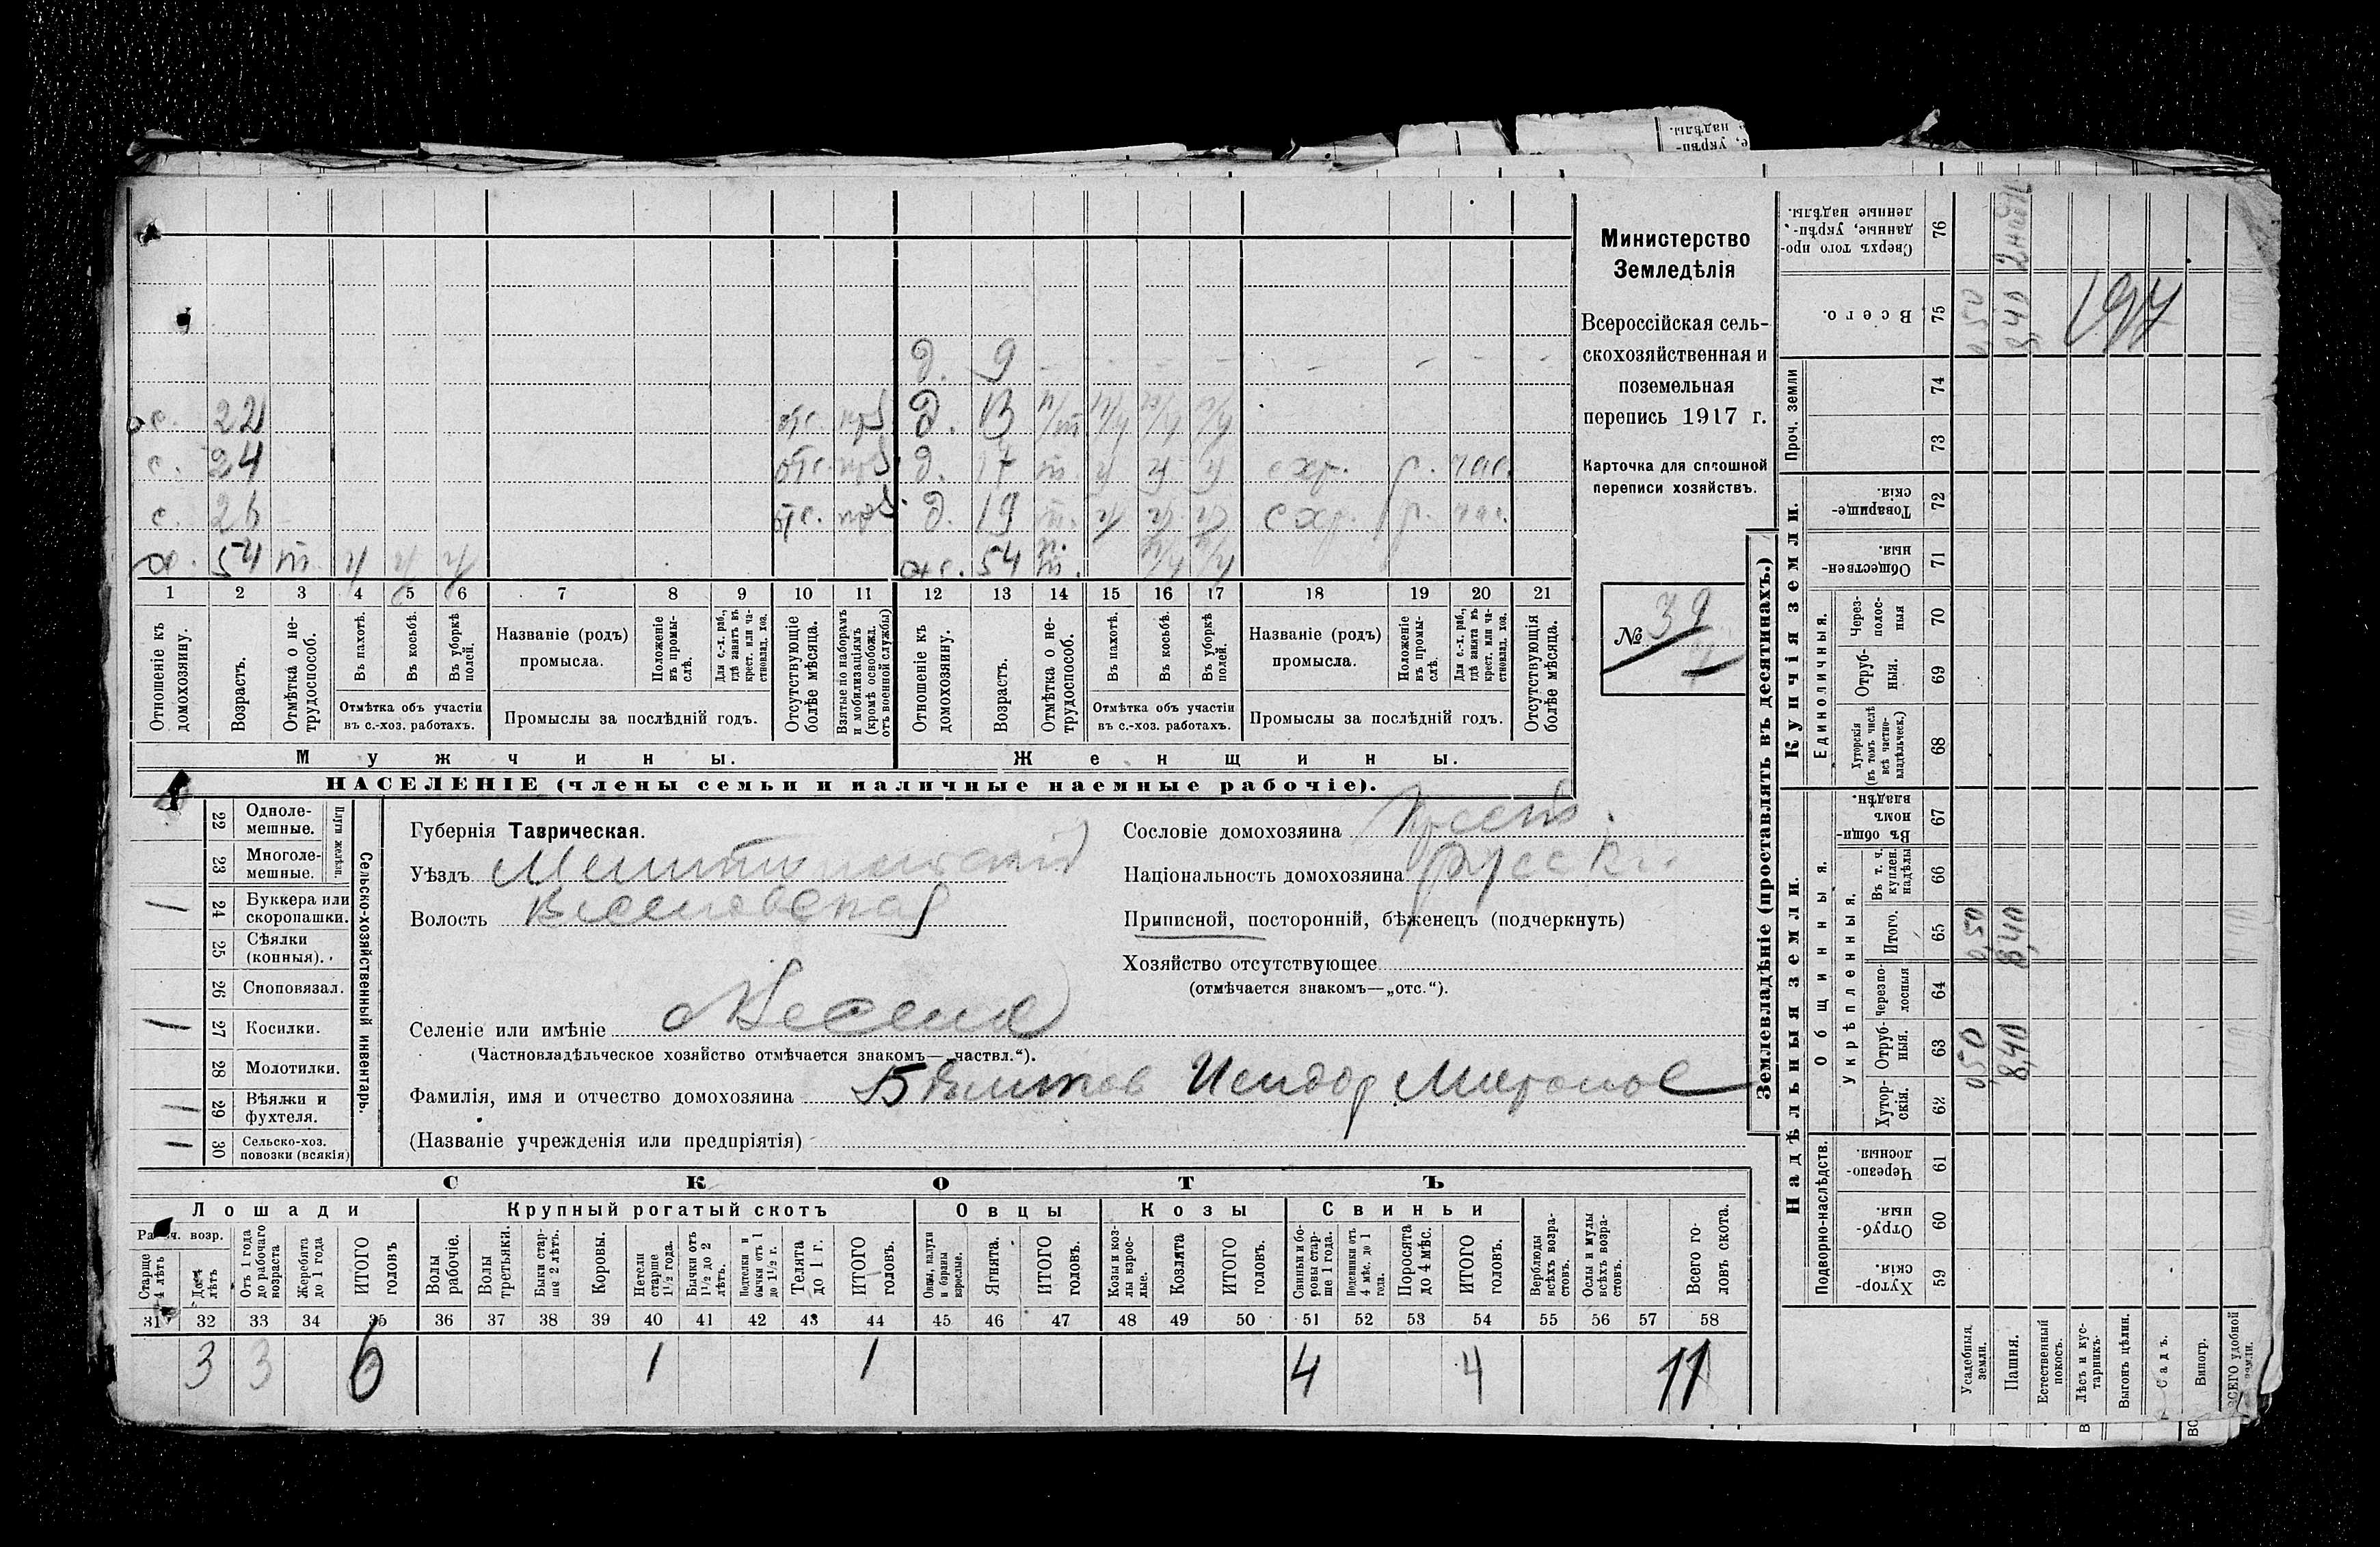 укрѣп-
надѣлы.
д. 9 – – – – – – –
с. 22 отс. моб. д. 13
с. 24 отс. моб. д. 17 п. схр. р. час.
с. 26 отс. моб. д. 19 схр. р. час.
х. 54 ж. 54
1 2 3 4 5 6 7 8 9 10 11 12 13 14 15 16 17 18 19 20 21
Отношеніе къ домохозяину.
Возрастъ.
Отмѣтка о не-трудоспособ.
Въ пахотѣ.
Въ косьбѣ.
Въ уборкѣ полей.
Отмѣтка объ участіи
въ с.-хоз. работахъ.
Названіе (родъ)
промысла.
Положеніе въ промы-слѣ.
Для с.-х. раб., гдѣ занятъ въ крест. или ча-стновлад. хоз.
Промыслы за послѣдній годъ.
Отсутствующіе болѣе мѣсяца.
Взятые по наборамъ и мобилизаціямъ (кромѣ освобожд. отъ военной службы)
Отношеніе къ домохозяину.
Возрастъ.
Отмѣтка о не-трудоспособ.
Въ пахотѣ.
Въ косьбѣ.
Въ уборкѣ полей.
Отмѣтка объ участіи
въ с.-хоз. работахъ.
Названіе (родъ)
промысла.
Положеніе въ промы-слѣ.
Для с.-х. раб., гдѣ занята въ крест. или ча-стновлад. хоз.
Промыслы за послѣдній годъ.
Отсутствующія болѣе мѣсяца.
Мужчины. Женщины.
НАСЕЛЕНІЕ (члены семьи и наличные наемные рабочіе).
Министерство
Земледѣлія
Всероссійская сель-
скохозяйственная и
поземельная
перепись 1917 г.
Карточка для сплошной
переписи хозяйствъ.
№ 39
22 Одноле-мешные.
23 Многоле-мешные.
Плуги желѣзн.
24 Буккера или скоропашки. 1
25 Сѣялки (конныя).
26 Сноповязал.
27 Косилки. 1
28 Молотилки.
29 Вѣялки и фухтеля. 1
30 Сельско-хоз. повозки (всякія) 1
Сельско-хозяйственный инвентарь.
Губернія Таврическая.
Уѣздъ Мелитопольскій
Волость Веселовская
Селеніе или имѣніе Веселое
(Частновладѣльческое хозяйство отмѣчается знакомъ—„частвл.“).
Фамилія, имя и отчество домохозяина Исидор Миронов
(Названіе учрежденія или предпріятія)
Сословіе домохозяина Крест.
Національность домохозяина Русскій
Приписной, посторонній, бѣженецъ (подчеркнуть)
Хозяйство отсутствующее
(отмѣчается знакомъ—„отс.“).
СКОТЪ
Лошади Крупный рогатый скотъ Овцы Козы Свиньи
Рабоч. возр.
Старше 4 лѣтъ
До 4 лѣтъ
Отъ 1 года до рабочаго возраста
Жеребята до 1 года
ИТОГО головъ
Волы рабочіе.
Волы третьяки.
Быки стар-ше 2 лѣтъ.
Коровы.
Нетели старше 1½ года.
Бычки отъ 1½ до 2 лѣтъ.
Подтелки и бычки отъ 1 до 1½ г.
Телята до 1 г.
ИТОГО головъ.
Овцы, валухи и бараны взрослые.
Ягнята.
ИТОГО головъ.
Козы и коз-лы взрос-лые.
Козлята
ИТОГО головъ.
Свиньи и бо-ровы стар-ше 1 года.
Подсвинки отъ 4 мѣс. до 1 года.
Поросята до 4 мѣс.
ИТОГО головъ.
Верблюды всѣхъ возра-стовъ.
Ослы и мулы всѣхъ возра-стовъ.
Всего го-ловъ скота.
31 32 33 34 35 36 37 38 39 40 41 42 43 44 45 46 47 48 49 50 51 52 53 54 55 56 57 58
3 3 6 1 1 4 4 11
Землевладѣніе (проставлять въ десятинахъ.)
Надѣльныя земли. Купчія земли.
Проч. земли
Подворно-наслѣдств.
Общинныя.
Укрѣпленныя.
Единоличныя.
Сверхъ того про-данные, укрѣп-ленные надѣлы. 76
Всего. 75 0,50 8,40
74
73
Товарище-скія. 72
Обществен-ныя. 71
Через-полос-ныя 70
Отруб-ныя. 69
Хуторскія (въ томъ числѣ всѣ частно-владѣльческ.) 68
Въ общин-номъ владѣн. 67
Въ т. ч. куплен. надѣлы 66
Итого. 65 0,50 8,40
Черезпо-лосныя 64
Отруб-ныя. 63 0,50 8,40
Хутор-скія. 62
Черезпо-лосныя. 61
Отруб-ныя. 60
Хутор-скія. 59
Усадебныя земли.
Пашня.
Естественный покосъ.
Лѣсъ и кус-тарникъ.
Выгонъ цѣлин.
Садъ.
Виногр.
ВСЕГО удобной земли.